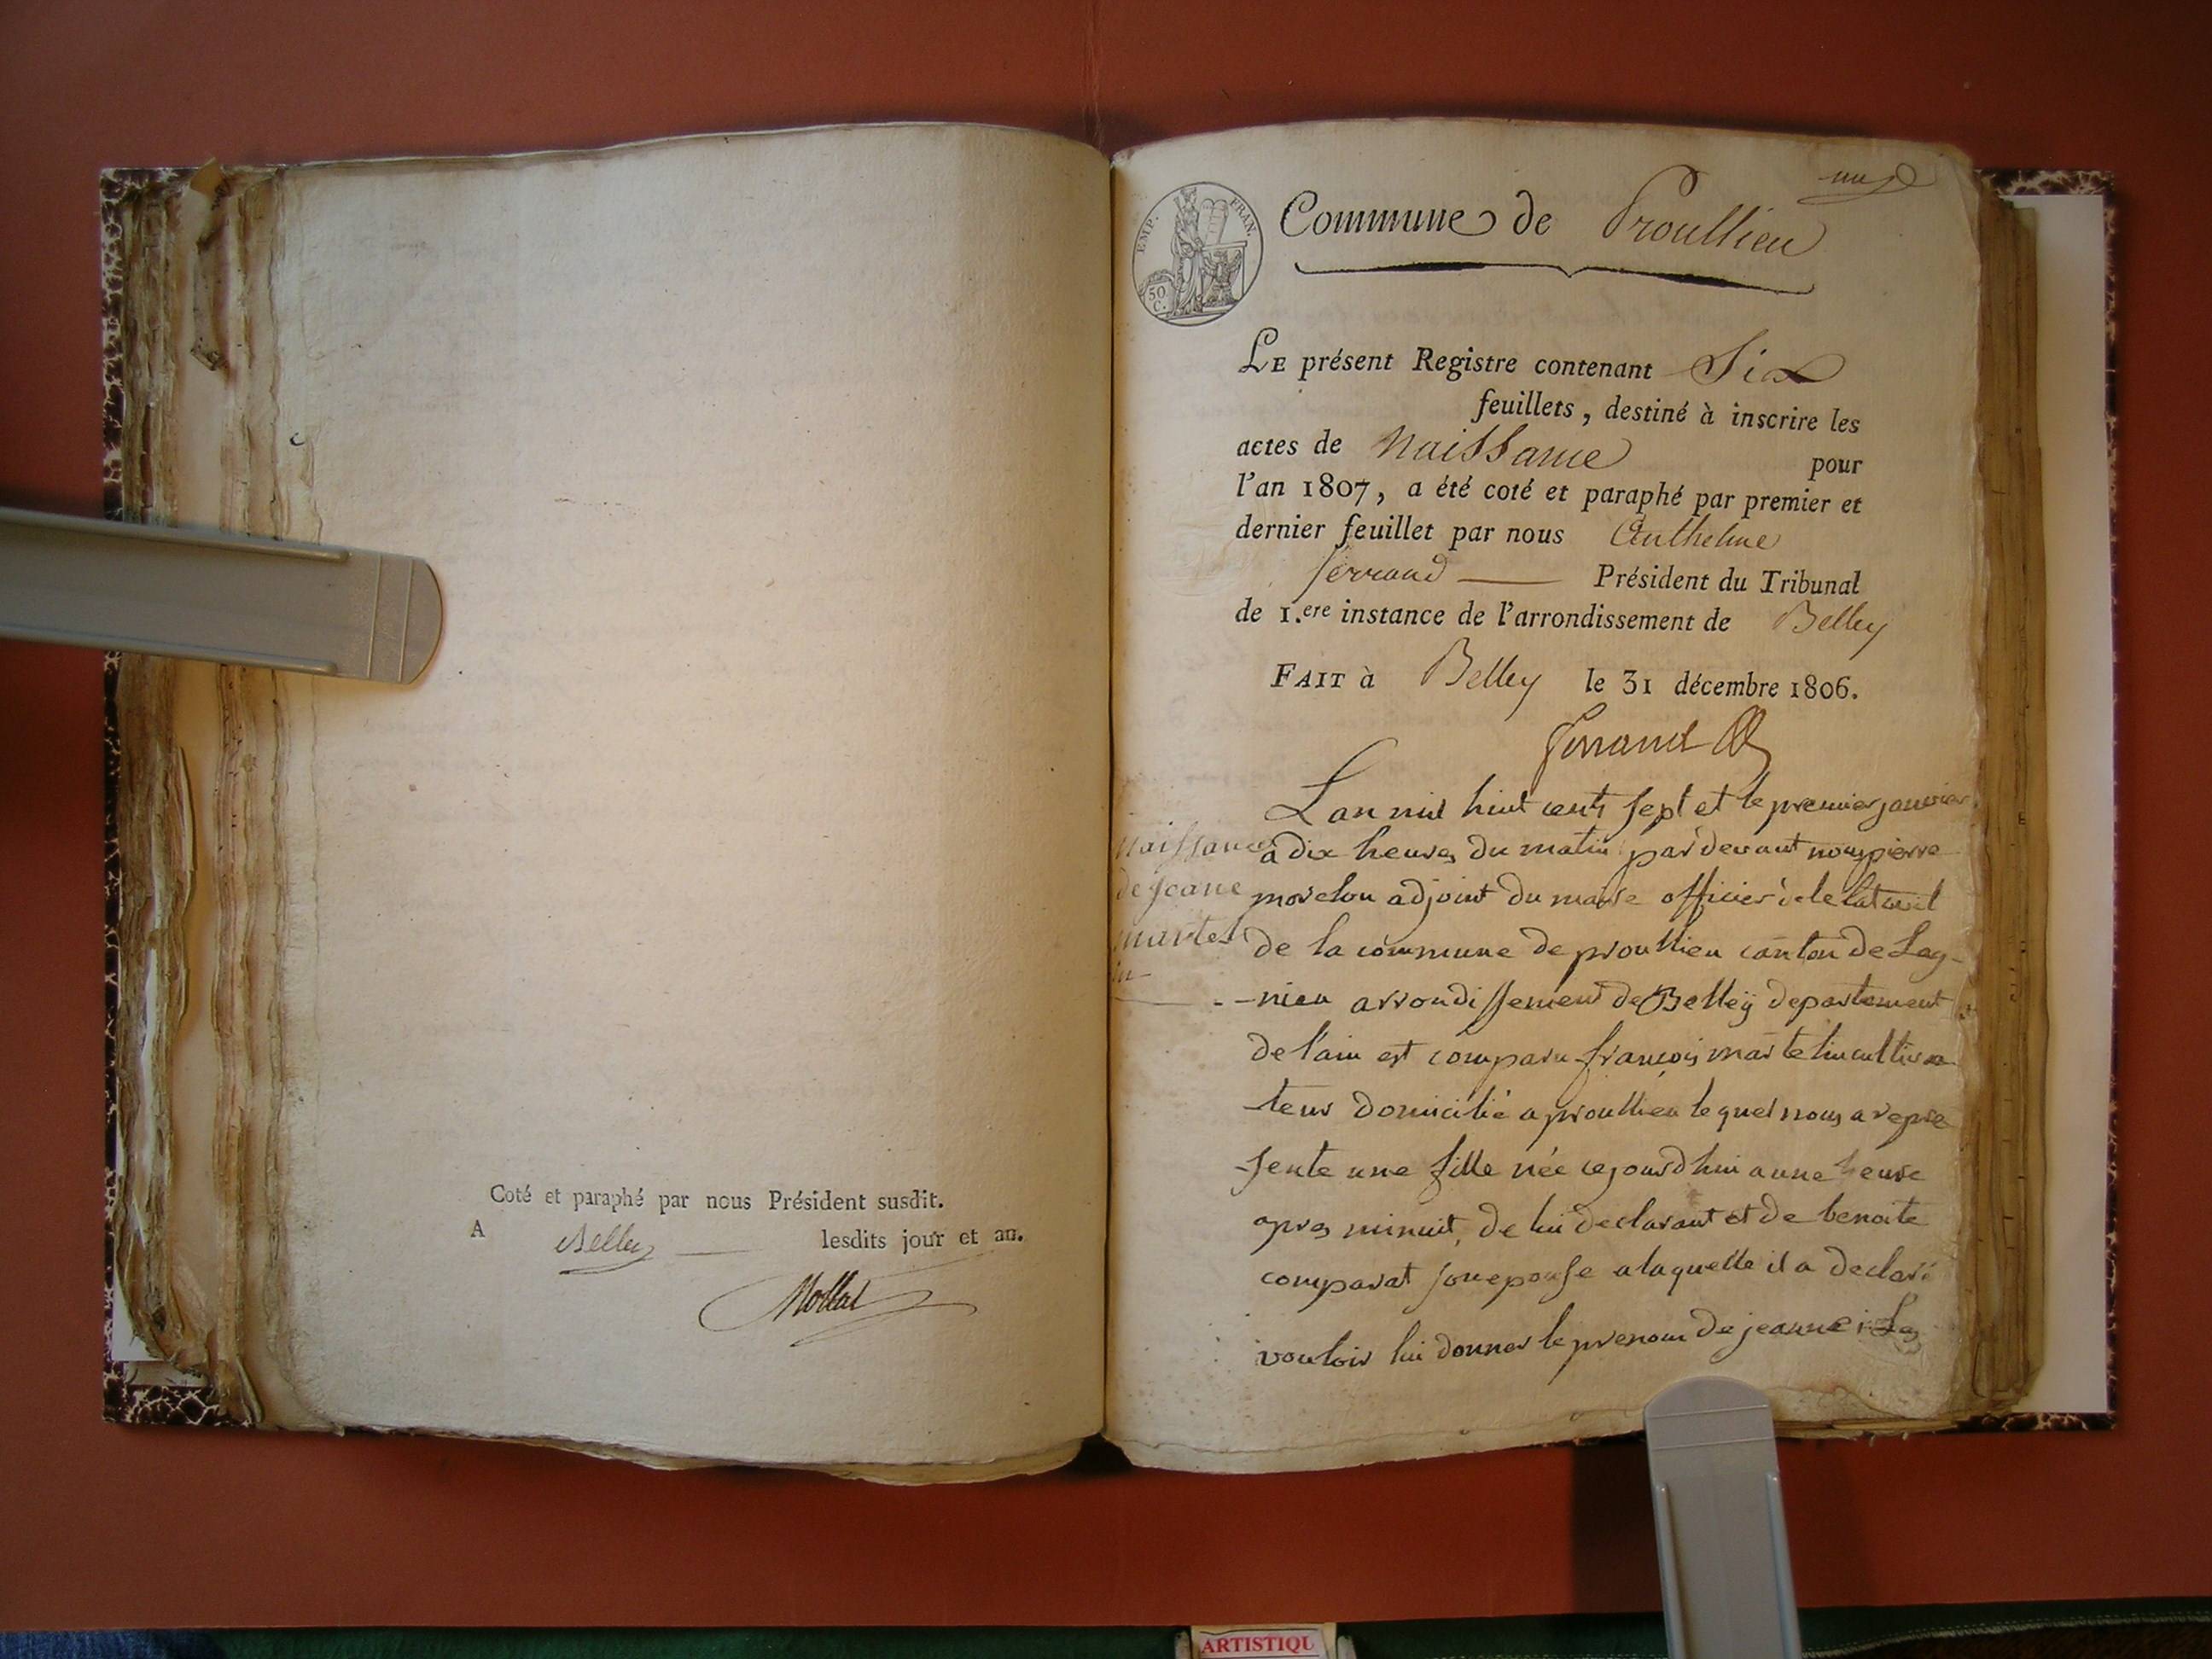 Coté et paraphé par nous Président susdit.
A Belley lesdits jour et an.
Mollat
un
EMP. FRAN.
50 C.
Commune de Proullieu
LE présent Registre contenant Six
feuillets, destiné à inscrire les
actes de Naissance pour
l'an 1807, a été coté et paraphé par premier et
dernier feuillet par nous Anthelme
ferrand Président du Tribunal
de 1.ere instance de l'arrondissement de Belley
FAIT à Belley le 31 décembre 1806.
ferrand
naissance
de jeane
martel
in
Lan mil huit cents sept et le premier janvier
a dix heures du matin par devant nous pierre
morelon adjoint du maire officier de letat civil
de la commune de proullieu canton de Lag-
-nieu arrondissement de Belleÿ departement
de l'ain est comparu françois martelin cultiva
teur domicilié a proullieu lequel nous a repre
sente une fille née cejourdhui a une heure
apres minuit, de lui declarant et de benoite
comparat son epouse a laquelle il a declaré
vouloir lui donner le prenom de jeanne Les
ARTISTIQU